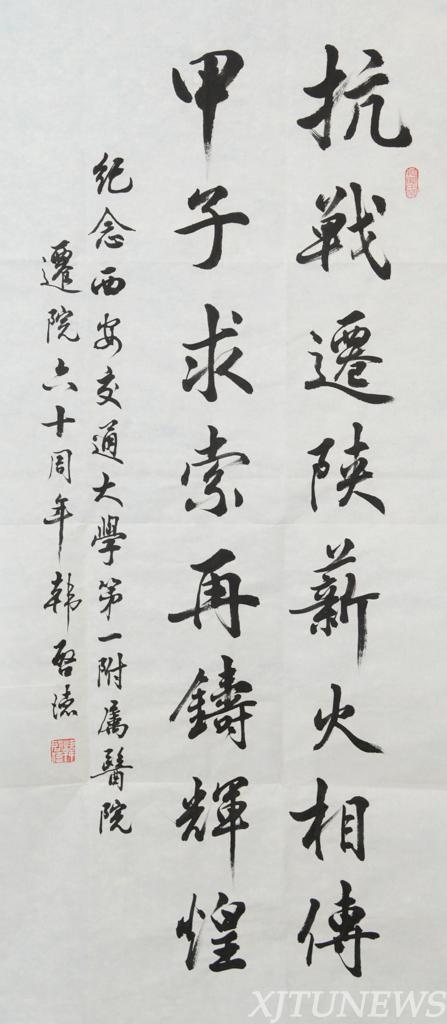 抗戰遷陝薪火相傳
甲子求索再鑄輝煌
紀念西安交通大學第一附属醫院
遷院六十周年韩啓德
XJTUNEWS